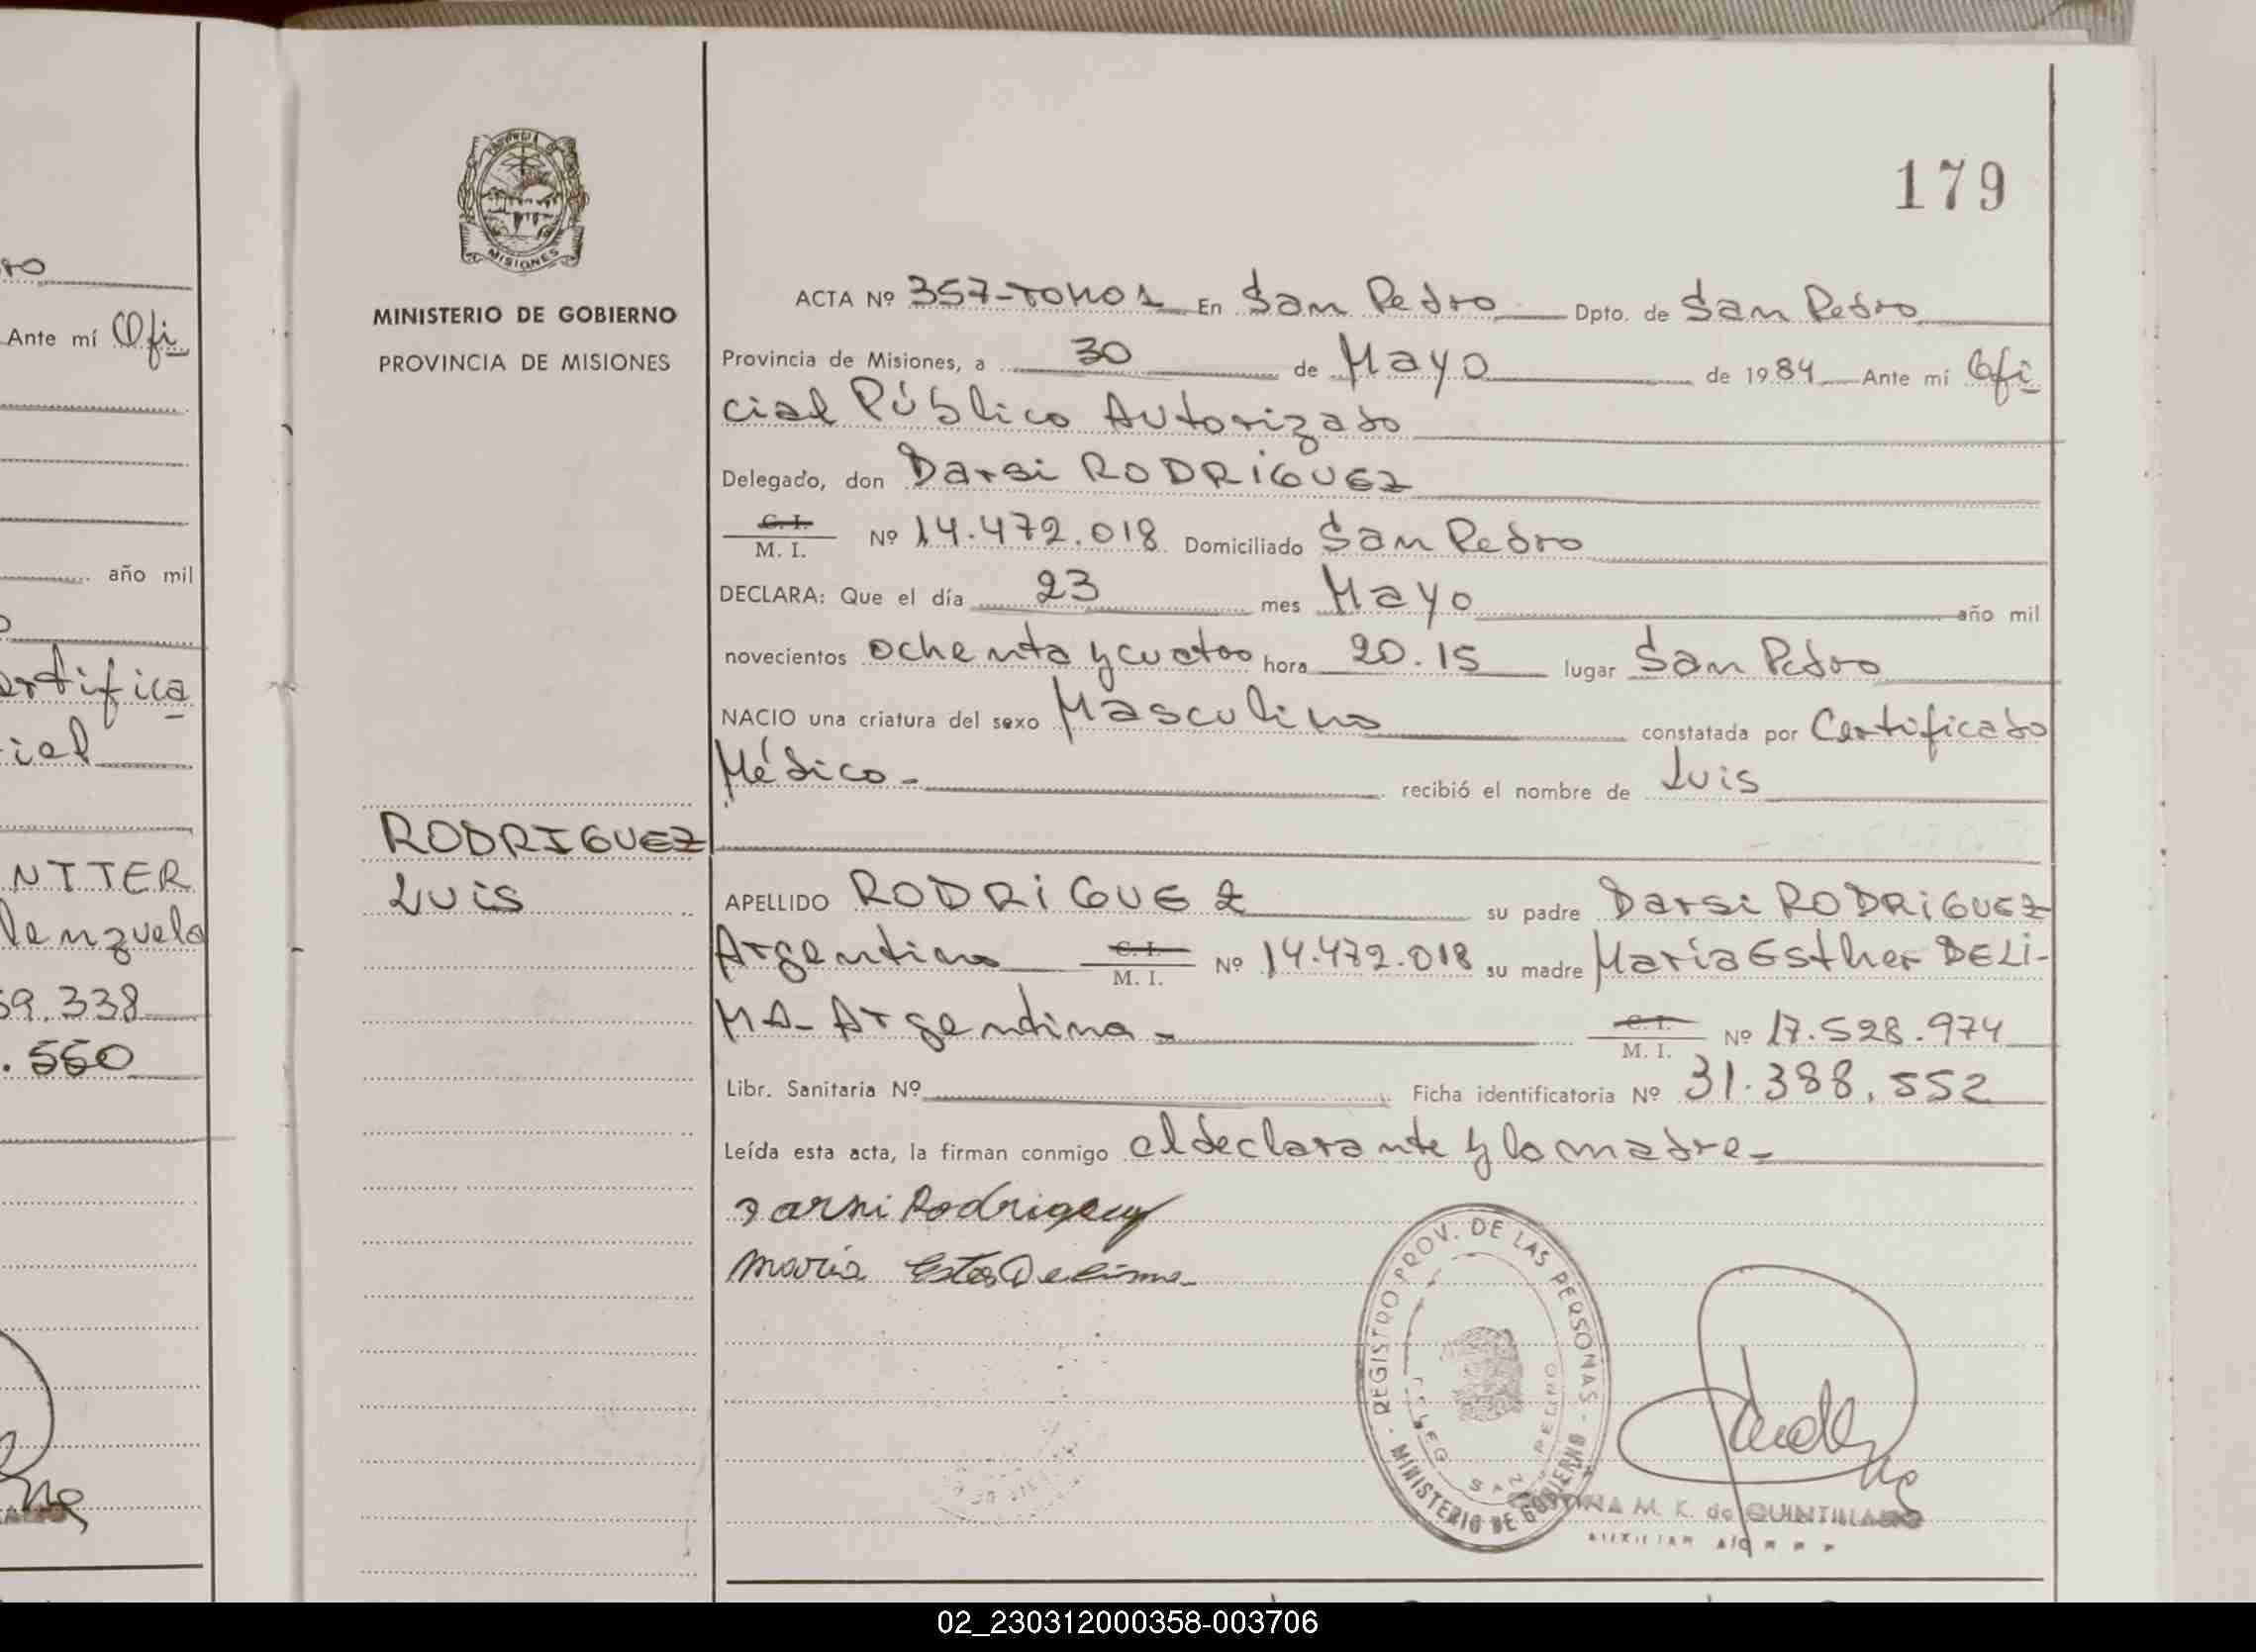 ro
Ante mí Ofi
año mil
o
ertifica
ial
NTTER
lenzuela
59.338
.550
PROVINCIA DE
MISIONES
MINISTERIO DE GOBIERNO
PROVINCIA DE MISIONES
RODRIGUEZ
Luis
179
ACTA Nº 357-TOMO 1 En San Pedro Dpto. de San Pedro
Provincia de Misiones, a 30 de Mayo de 1984 Ante mí Ofi
cial Público Autorizado
Delegado, don Darsi RODRIGUEZ
C. I.
M. I. Nº 14.472.018 Domiciliado San Pedro
DECLARA: Que el día 23 mes Mayo año mil
novecientos ochenta y cuatro hora 20.15 lugar San Pedro
NACIO una criatura del sexo Masculino constatada por Certificado
Médico- recibió el nombre de Luis
APELLIDO RODRIGUEZ su padre Darsi RODRIGUEZ
Argentino C. I. M. I. Nº 14.472.018 su madre María Esther DELI-
MA- Argentina- C. I. M. I. Nº 17.528.974
Libr. Sanitaria Nº Ficha identificatoria Nº 31.388.552
Leída esta acta, la firman conmigo el declarante y la madre-
Darsi Rodriguez
Maria Ester Delima
REGISTRO PROV. DE LAS PERSONAS - MINISTERIO DE GOBIERNO -
SAN PEDRO
M. K. de QUINTILLANO
AUXILIAR
02_230312000358-003706